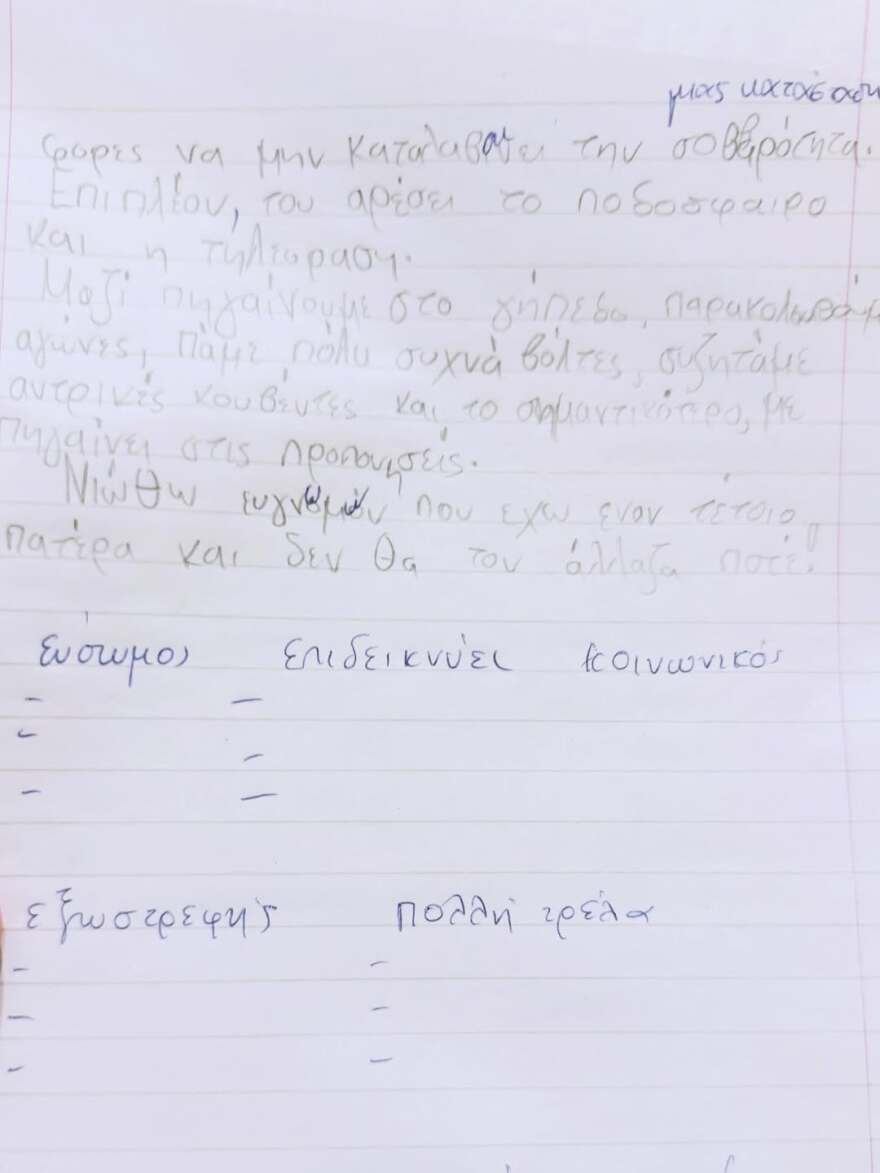 μιας κατάσ
φορες να μην καταλαβαίνει την σοβαρότητα.
Επιπλέον, του αρέσει το ποδοσφαιρο
και η τηλεοραση.
Μαζί πηγαίνουμε στο γήπεδο, παρακολουθάμ
αγώνες, πάμε πολυ συχνά βόλτες, συζητάμε
αντρικές κουβέντες και το σημαντικότερο, με
πηγαίνει στις προπονησείς.
Νιώθω ευγνωμων που εχω εναν τέτοιο
πατέρα και δεν θα τον άλλαζα ποτέ!
εύστομος επιδεικνύει κοινωνικός
- -
- -
- -
εξωστρεφής πολλή τρέλα
- -
- -
- -